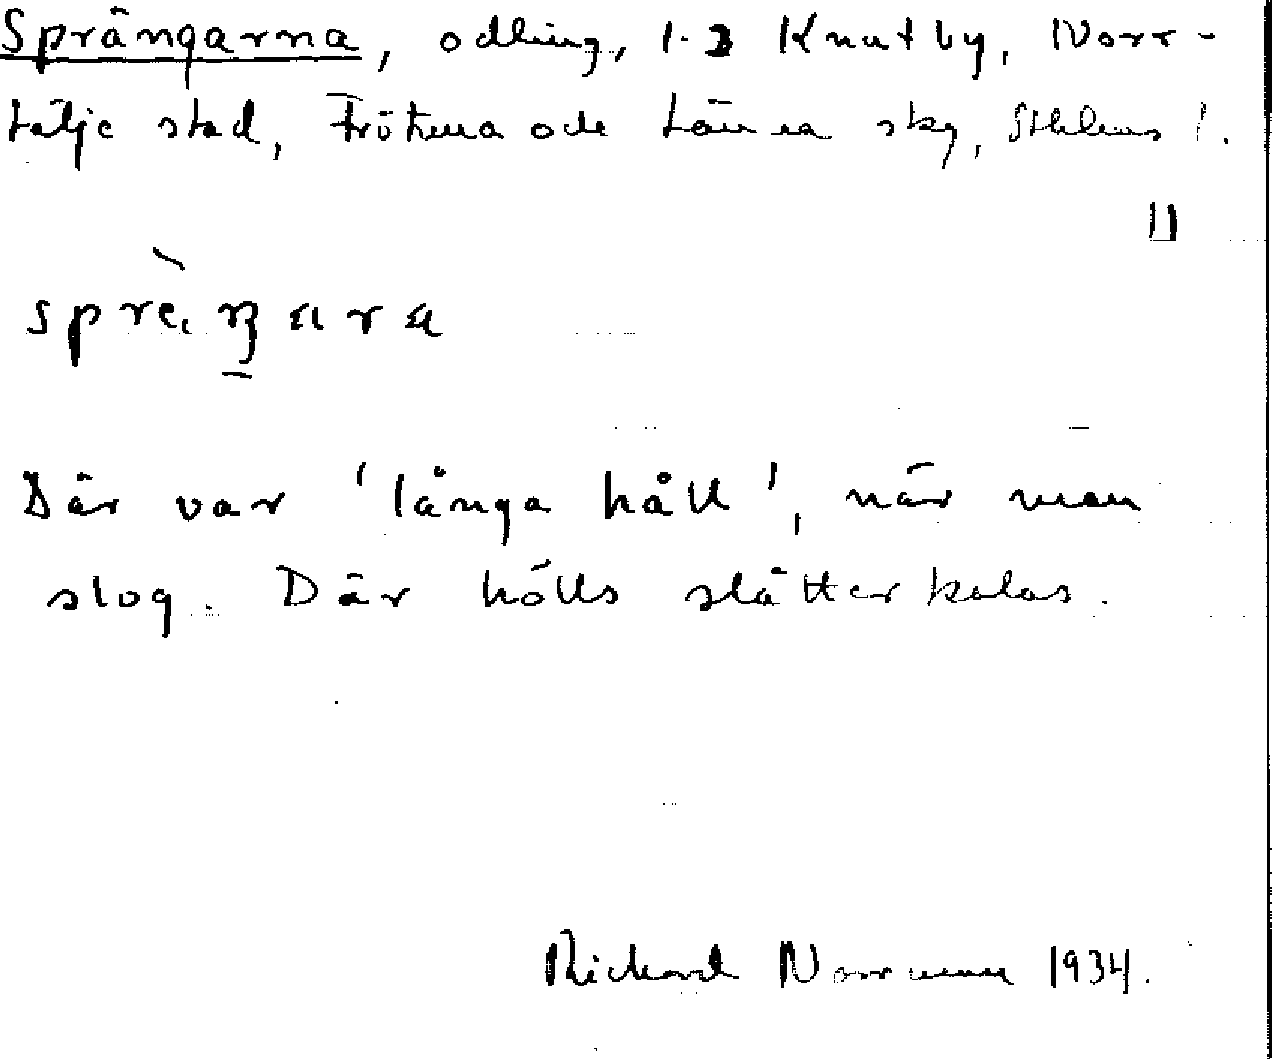 Sprängarna, odling, 1-2 Knutby, Norr-
tälje stad, Frötuna och Länna sky, Sthlms l.
Där var 'långa håll', när man
slog. Där hölls slåtterkalas.
Rickard Norrman 1934.